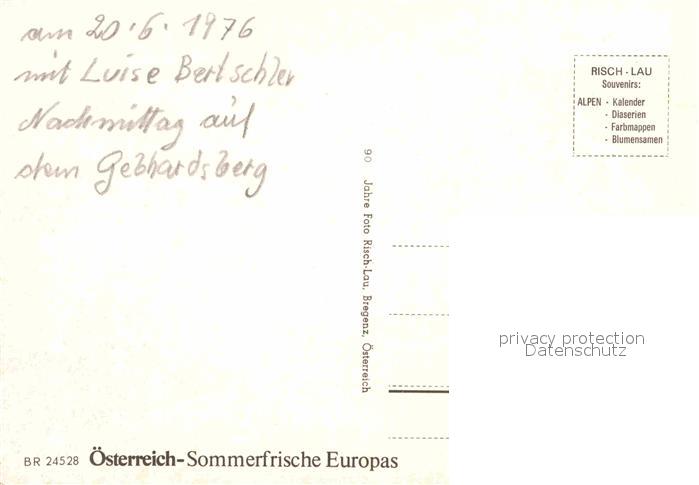 am 20.6.1976
mit Luise Bertschler
Nachmittag auf
dem Gebhardsberg
RISCH - LAU
Souvenirs:
ALPEN - Kalender
- Diaserien
- Farbmappen
- Blumensamen
90 Jahre Foto Risch-Lau, Bregenz, Österreich
privacy protection
Datenschutz
BR 24528 Österreich-Sommerfrische Europas